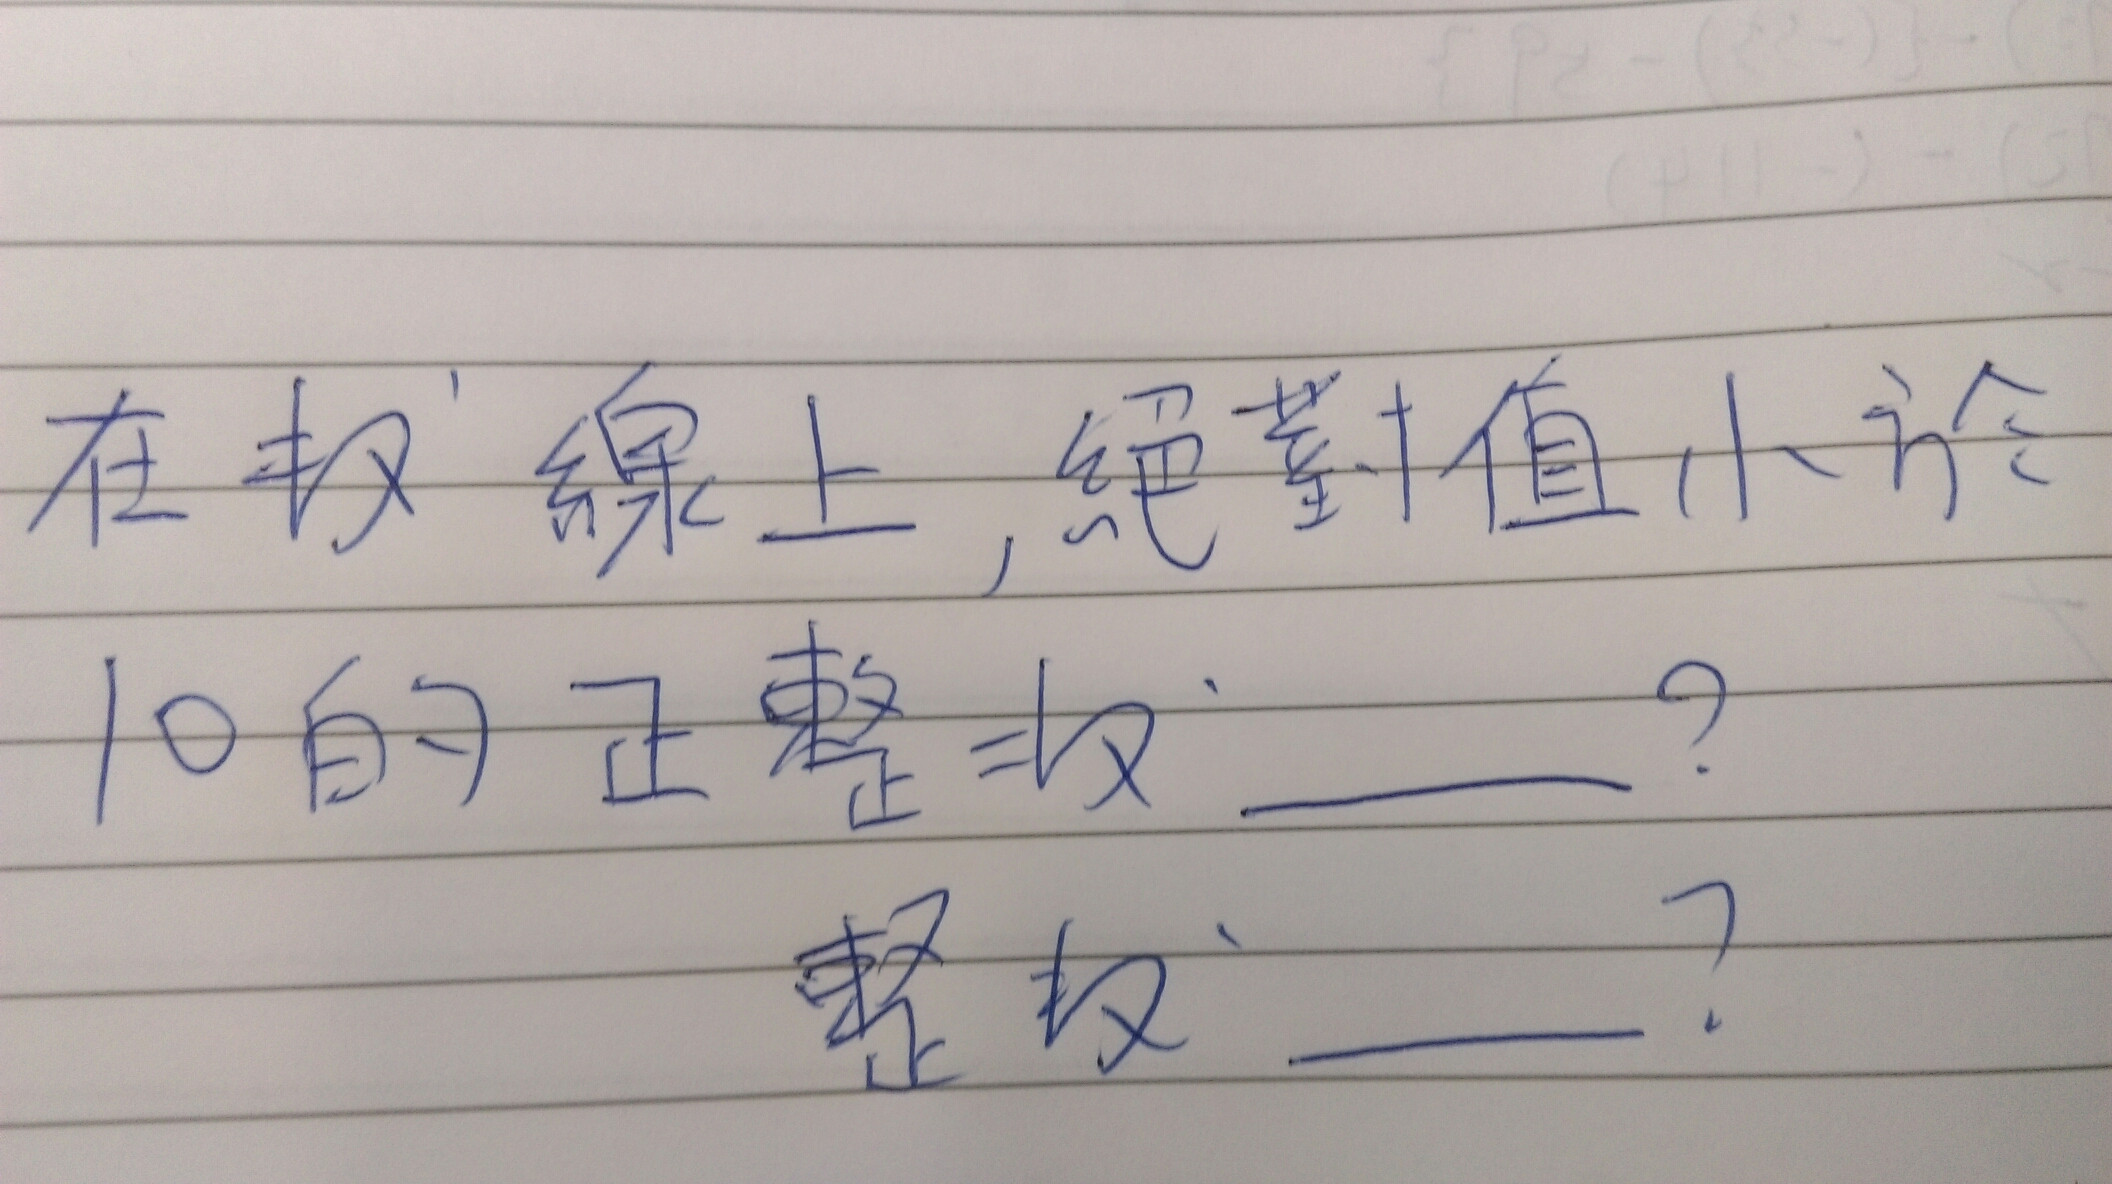 在数線上,絕對值小於
10的正整数______?
整数______?